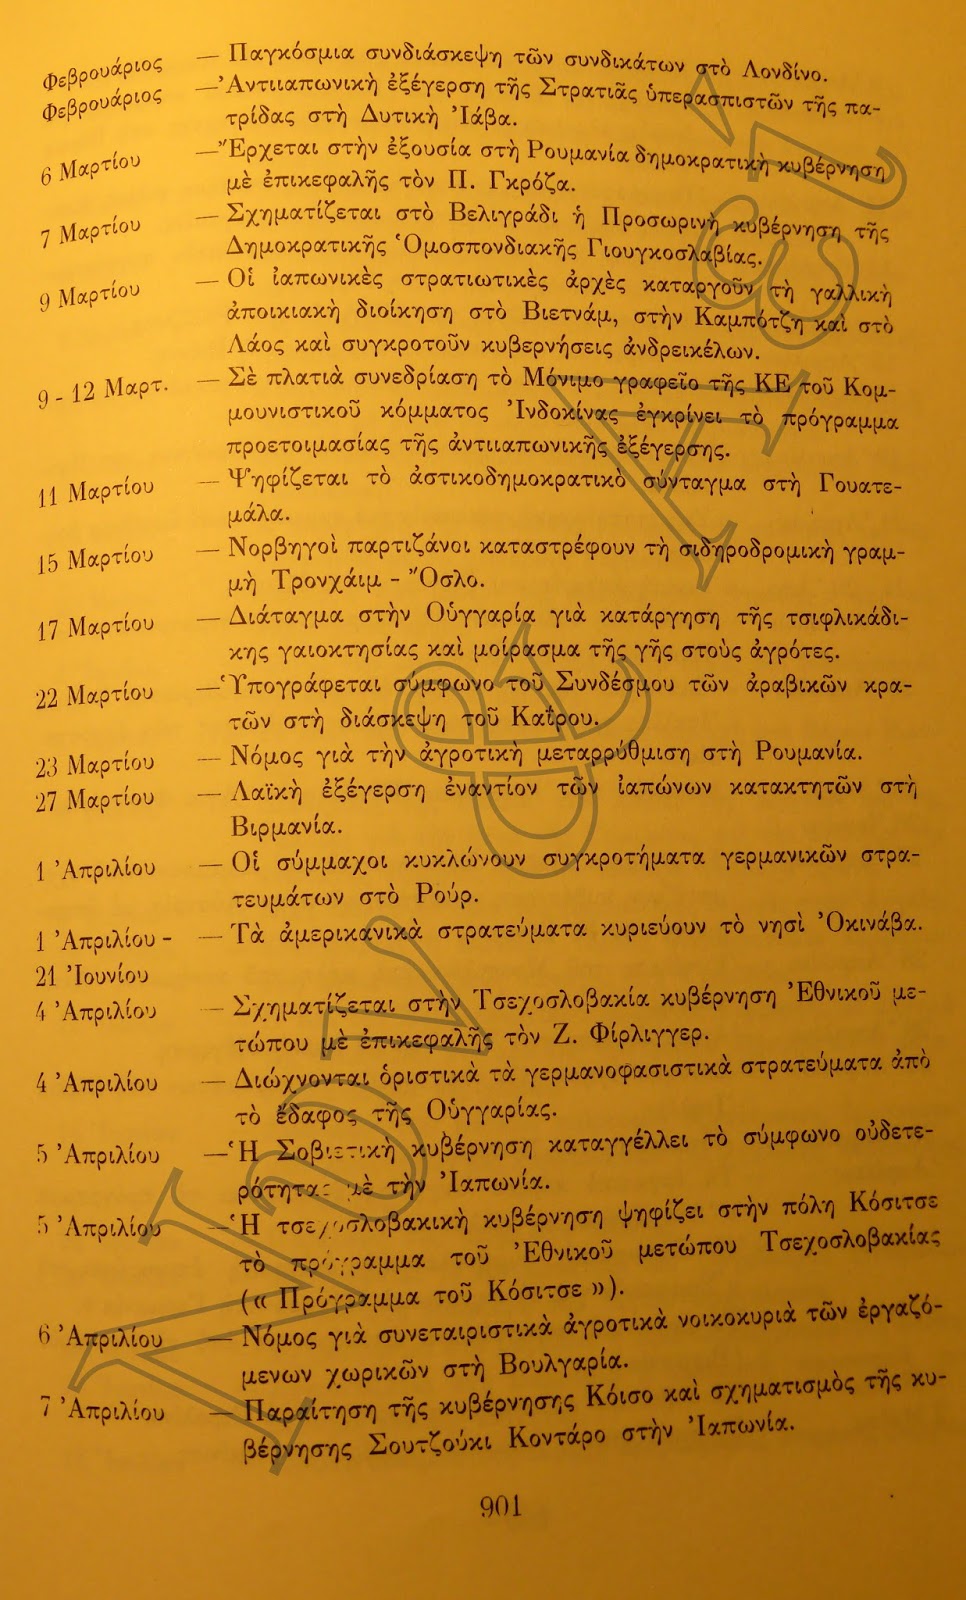 Φεβρουάριος — Παγκόσμια συνδιάσκεψη τῶν συνδικάτων στὸ Λονδίνο.
Φεβρουάριος — Ἀντιιαπωνικὴ ἐξέγερση τῆς Στρατιᾶς ὑπερασπιστῶν τῆς πα-
τρίδας στὴ Δυτικὴ Ἰάβα.
6 Μαρτίου — Ἔρχεται στὴν ἐξουσία στὴ Ρουμανία δημοκρατικὴ κυβέρνηση
μὲ ἐπικεφαλῆς τὸν Π. Γκρόζα.
7 Μαρτίου — Σχηματίζεται στὸ Βελιγράδι ἡ Προσωρινὴ κυβέρνηση τῆς
Δημοκρατικῆς Ὁμοσπονδιακῆς Γιουγκοσλαβίας.
9 Μαρτίου — Οἱ ἰαπωνικὲς στρατιωτικὲς ἀρχὲς καταργοῦν τὴ γαλλικὴ
ἀποικιακὴ διοίκηση στὸ Βιετνάμ, στὴν Καμπότζη καὶ στὸ
Λάος καὶ συγκροτοῦν κυβερνήσεις ἀνδρεικέλων.
9 - 12 Μαρτ. — Σὲ πλατιὰ συνεδρίαση τὸ Μόνιμο γραφεῖο τῆς ΚΕ τοῦ Κομ-
μουνιστικοῦ κόμματος Ἰνδοκίνας ἐγκρίνει τὸ πρόγραμμα
προετοιμασίας τῆς ἀντιιαπωνικῆς ἐξέγερσης.
11 Μαρτίου — Ψηφίζεται τὸ ἀστικοδημοκρατικὸ σύνταγμα στὴ Γουατε-
μάλα.
15 Μαρτίου — Νορβηγοὶ παρτιζάνοι καταστρέφουν τὴ σιδηροδρομικὴ γραμ-
μὴ Τρονχάιμ - Ὄσλο.
17 Μαρτίου — Διάταγμα στὴν Οὑγγαρία γιὰ κατάργηση τῆς τσιφλικάδι-
κης γαιοκτησίας καὶ μοίρασμα τῆς γῆς στοὺς ἀγρότες.
22 Μαρτίου — Ὑπογράφεται σύμφωνο τοῦ Συνδέσμου τῶν ἀραβικῶν κρα-
τῶν στὴ διάσκεψη τοῦ Καΐρου.
23 Μαρτίου — Νόμος γιὰ τὴν ἀγροτικὴ μεταρρύθμιση στὴ Ρουμανία.
27 Μαρτίου — Λαϊκὴ ἐξέγερση ἐναντίον τῶν ἰαπώνων κατακτητῶν στὴ
Βιρμανία.
1 Ἀπριλίου — Οἱ σύμμαχοι κυκλώνουν συγκροτήματα γερμανικῶν στρα-
τευμάτων στὸ Ρούρ.
1 Ἀπριλίου - — Τὰ ἀμερικανικὰ στρατεύματα κυριεύουν τὸ νησὶ Ὀκινάβα.
21 Ἰουνίου
4 Ἀπριλίου — Σχηματίζεται στὴν Τσεχοσλοβακία κυβέρνηση Ἐθνικοῦ με-
τώπου μὲ ἐπικεφαλῆς τὸν Ζ. Φίρλιγγερ.
4 Ἀπριλίου — Διώχνονται ὁριστικὰ τὰ γερμανοφασιστικὰ στρατεύματα ἀπὸ
τὸ ἔδαφος τῆς Οὑγγαρίας.
5 Ἀπριλίου — Ἡ Σοβιετικὴ κυβέρνηση καταγγέλλει τὸ σύμφωνο οὐδετε-
ρότητας μὲ τὴν Ἰαπωνία.
5 Ἀπριλίου — Ἡ τσεχοσλοβακικὴ κυβέρνηση ψηφίζει στὴν πόλη Κόσιτσε
τὸ πρόγραμμα τοῦ Ἐθνικοῦ μετώπου Τσεχοσλοβακίας
(« Πρόγραμμα τοῦ Κόσιτσε »).
6 Ἀπριλίου — Νόμος γιὰ συνεταιριστικὰ ἀγροτικὰ νοικοκυριὰ τῶν ἐργαζό-
μενων χωρικῶν στὴ Βουλγαρία.
7 Ἀπριλίου — Παραίτηση τῆς κυβέρνησης Κόισο καὶ σχηματισμὸς τῆς κυ-
βέρνησης Σουτζούκι Κοντάρο στὴν Ἰαπωνία.
901